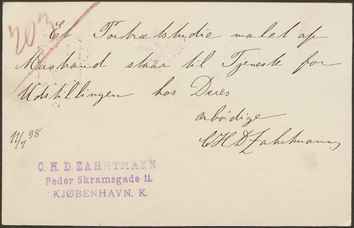 203
Et Portrætstudie malet af
Marstrand staar til Tjeneste for
Udstillingen hos Deres
ærbødige
CHDZahrtmann
11/7 98
C. H. D. ZAHRTMANN
Peder Skramsgade 11.
KJØBENHAVN. K.